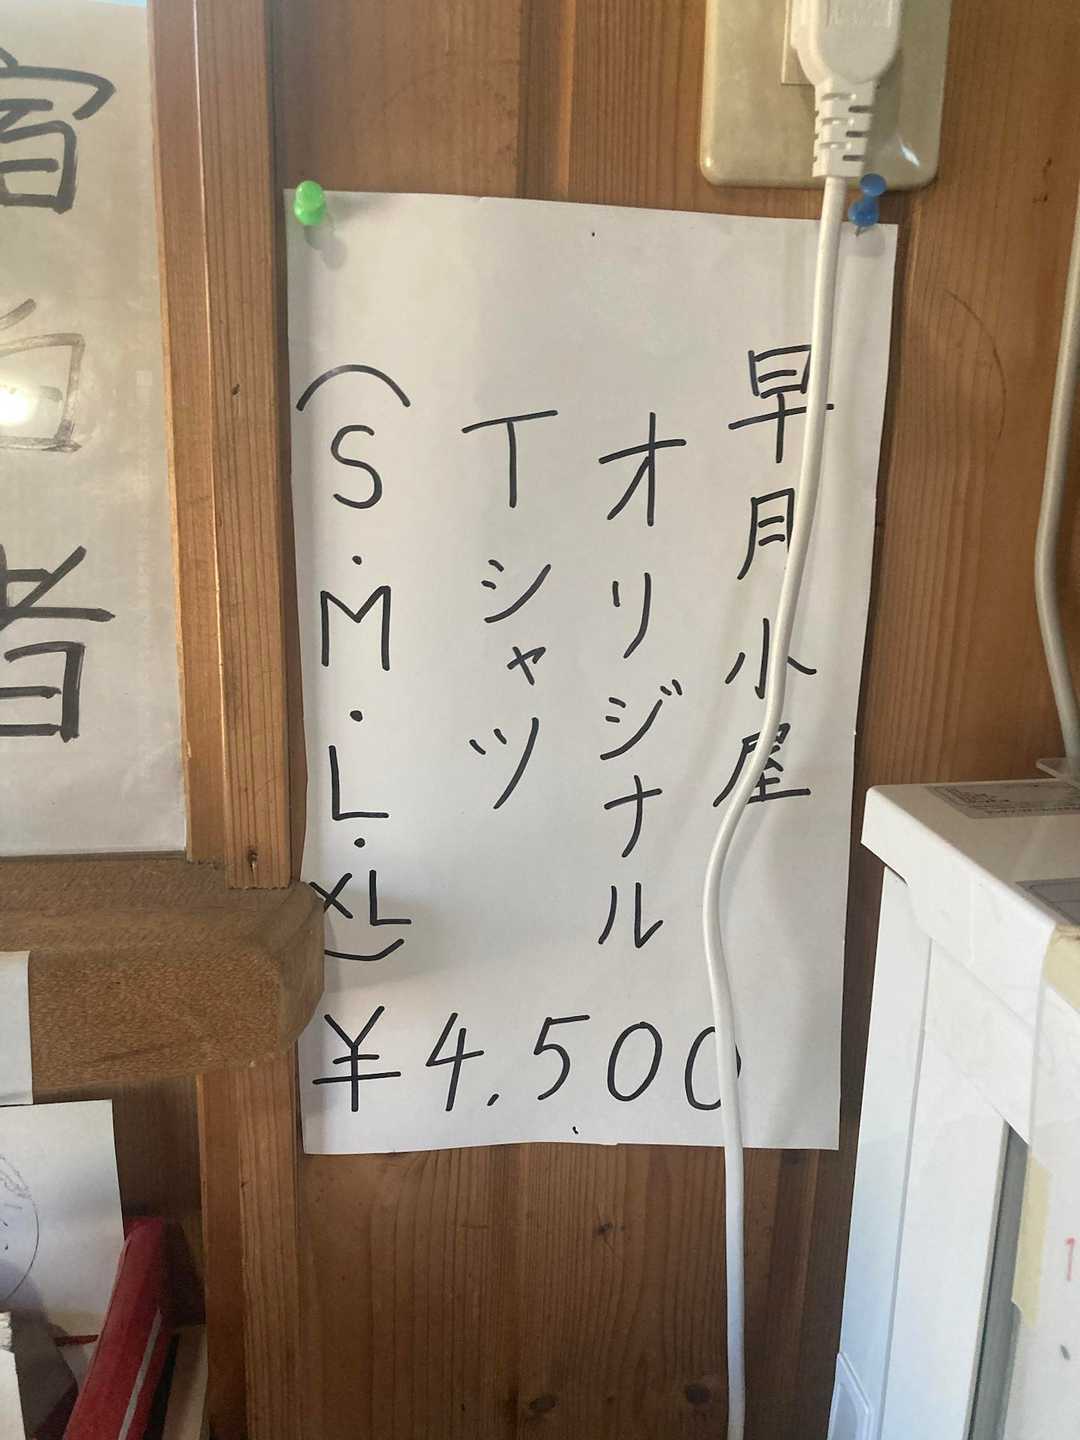 早月小屋
オリジナル
Tシャツ
(S・M・L・XL)
¥4,500
宿
者